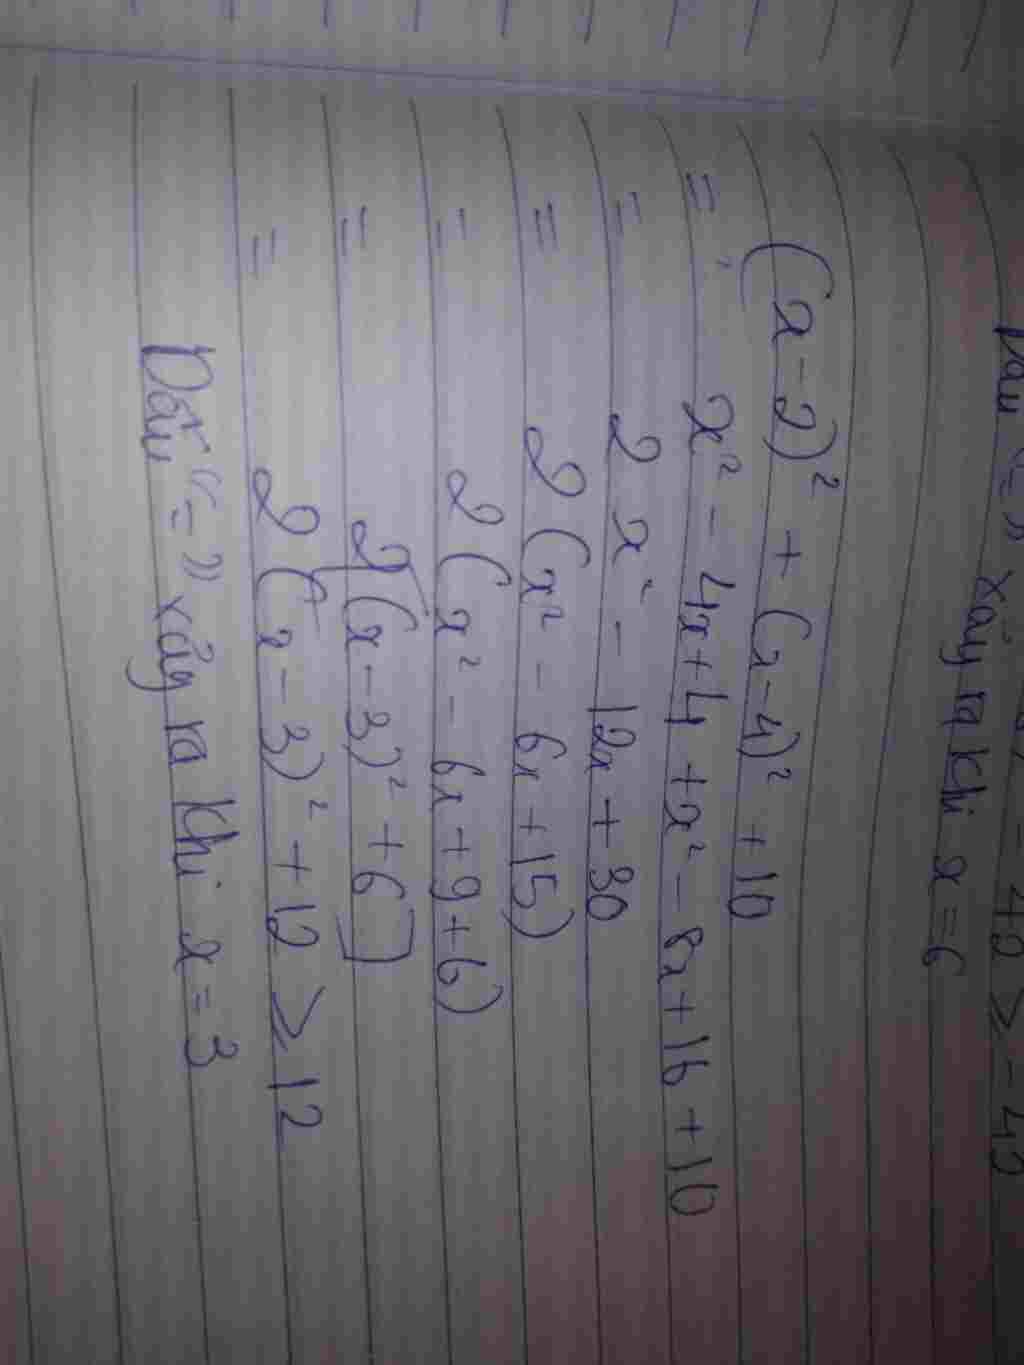 - 42 ≥ - 42
Dấu "=" xảy ra khi x = 6
(x-2)² + (x-4)² + 10
= x² - 4x + 4 + x² - 8x + 16 + 10
= 2x² - 12x + 30
= 2(x² - 6x + 15)
= 2(x² - 6x + 9 + 6)
= 2[(x-3)² + 6]
= 2(x-3)² + 12 ≥ 12
Dấu "=" xảy ra khi x = 3